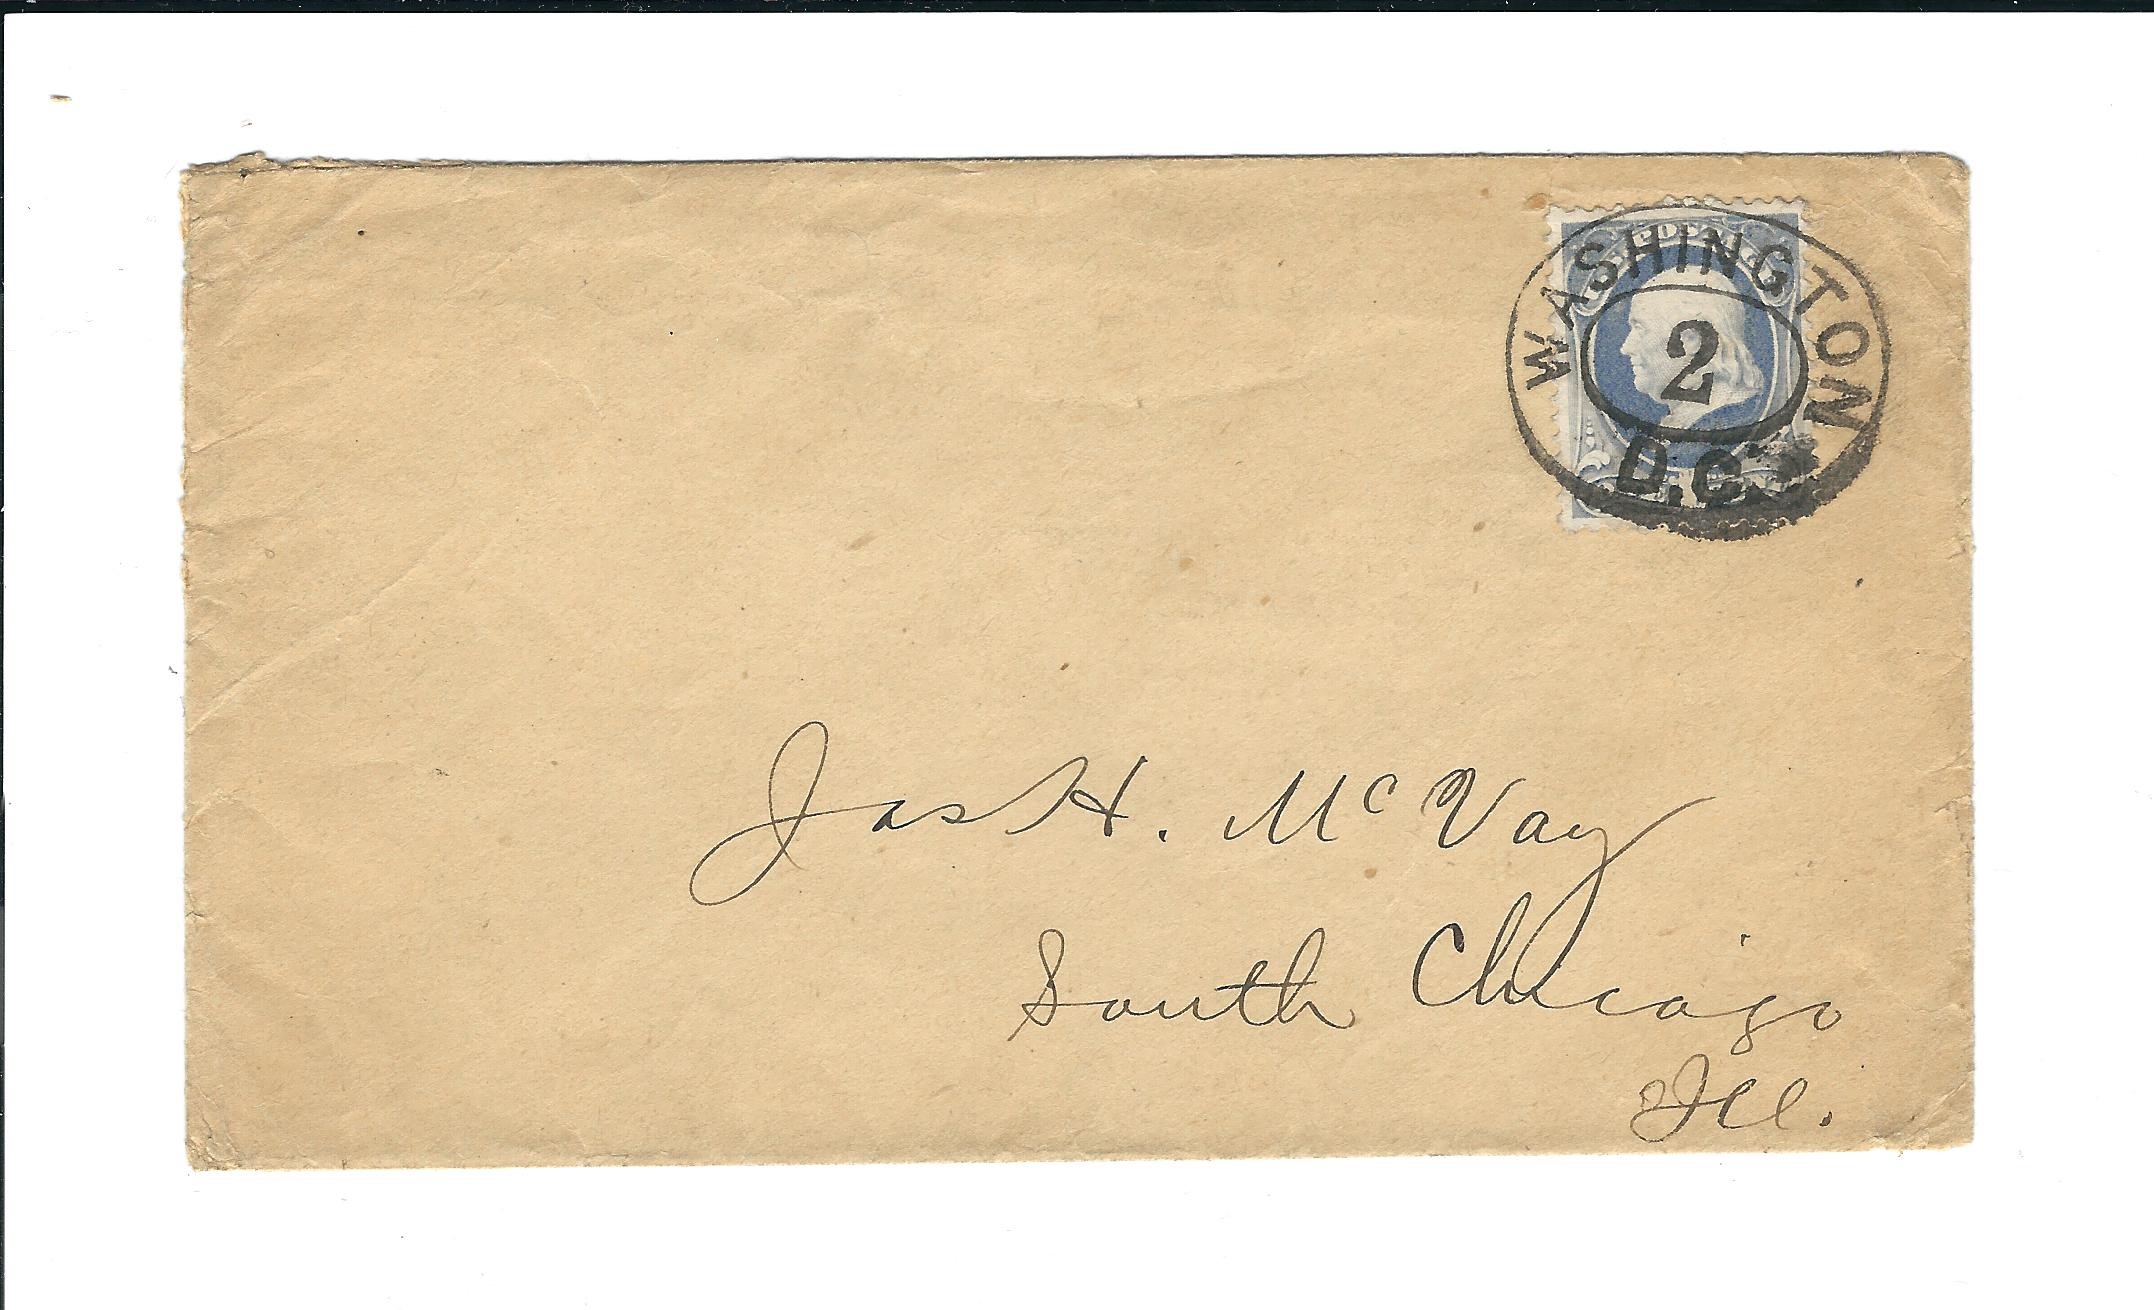 WASHINGTON
2
D.C.
Jas H. McVay
South Chicago
Ill.